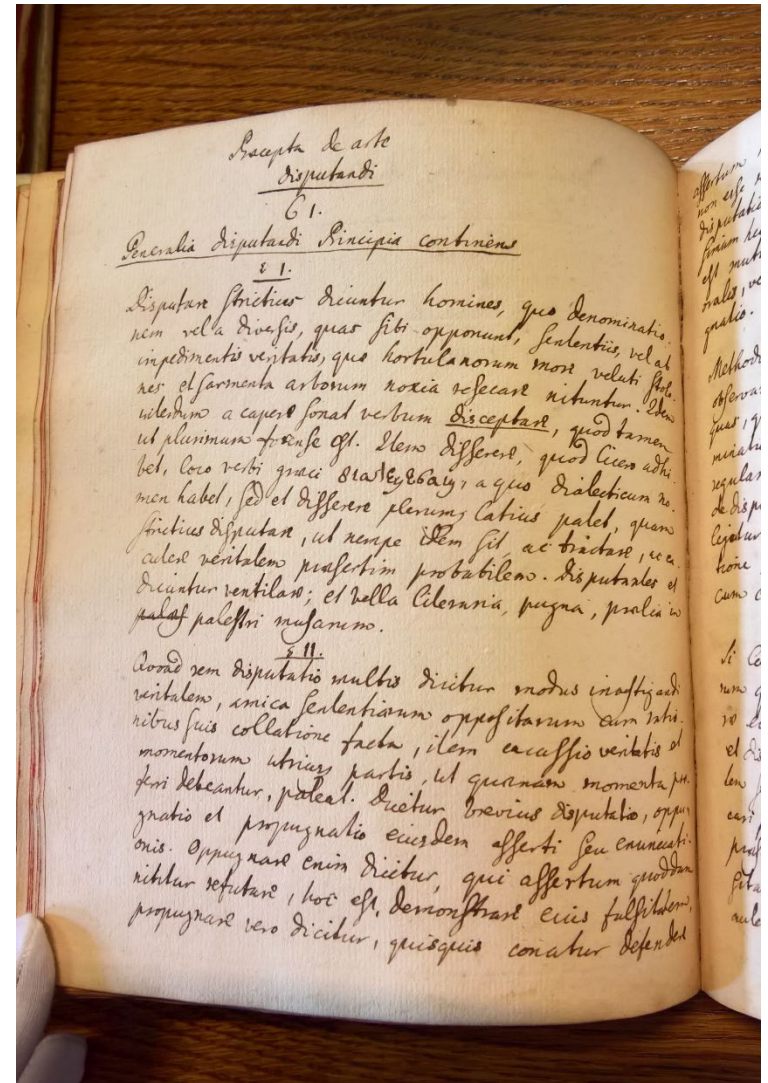 Præcepta de arte
disputandi
C 1.
Generalia disputandi Principia continens
§ 1.
Disputare strictius dicuntur homines, quo denominatio-
nem vel a diversis, quas sibi opponunt, sententiis, vel ab
impedimentis veritatis, quo hortulanorum more veluti stolo-
nes et sarmenta arborum noxia resecare nituntur. Idem
interdum a capere sonat verbum disceptare, quod tamen
ut plurimum forense est. Item disserere, quod Cicero adhi-
bet, loco verbi græci διαλεγεσθαι, a quo dialecticum no-
men habet, sed et disserere plerumq latius patet, quam
strictius disputare, ut nempe idem sit, ac tractare,
veritatem præsertim probabilem. Disputantes et
dicuntur ventilare; et bella Citeraria, pugna, prælia in
palæs palæstri musarum.
§ II.
Quoad rem disputatio multis dicitur modus investigandi
veritatem, amica sententiarum oppositarum cum ratio-
nibus suis collatione facta, item excussio veritatis et
momentorum utriusq partis, ut quænam momenta præ-
ferri debeantur, pateat. Dicitur brevius disputatio, oppu-
gnatio et propugnatio eiusdem asserti seu enunciati-
onis. Oppugnare enim dicitur, qui assertum quoddam
nititur refutare, hoc est, demonstrare eius falsitatem,
propugnare vero dicitur, quisquis conatur defendere
assertum
non esse
disputatio
est mut
oralis, ve
gnatio.
Methodu
observa
quas, q
regular
de disp
legitur
tione
cum c
Si
num
et